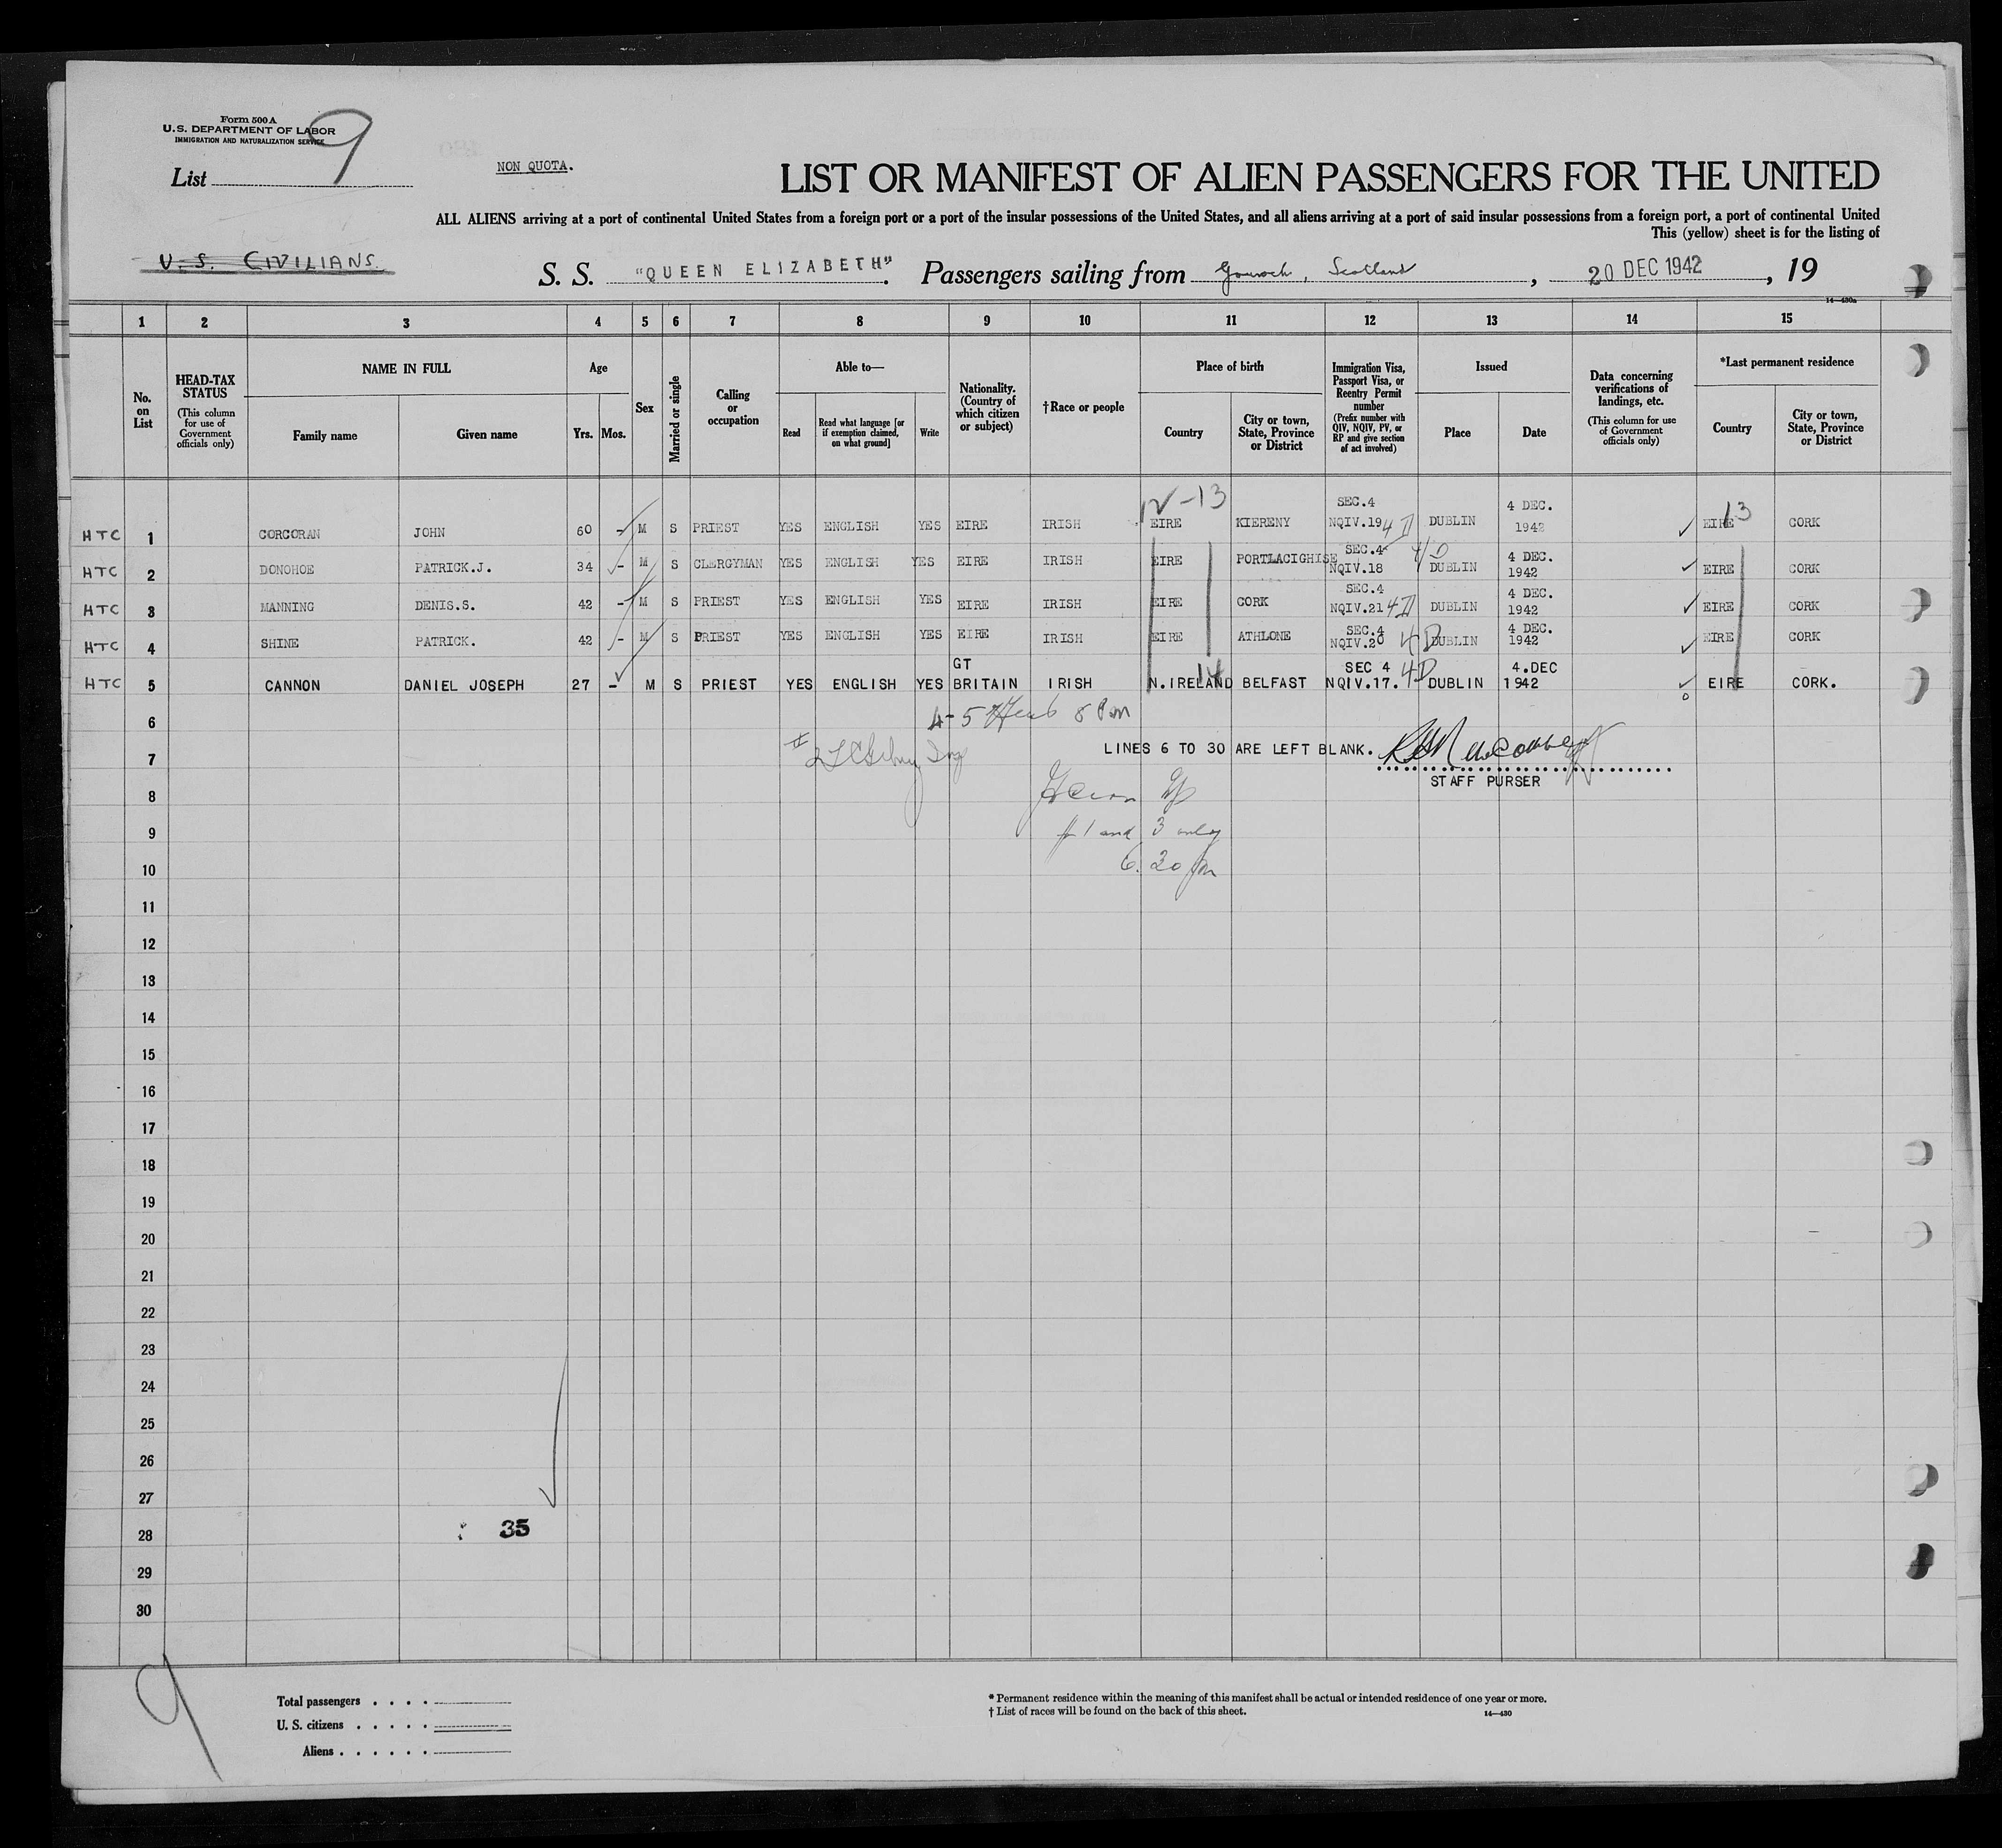 Form 500 A
U.S. DEPARTMENT OF LABOR
IMMIGRATION AND NATURALIZATION SERVICE
9
List
NON QUOTA.
LIST OR MANIFEST OF ALIEN PASSENGERS FOR THE UNITED
ALL ALIENS arriving at a port of continental United States from a foreign port or a port of the insular possessions of the United States, and all aliens arriving at a port of said insular possessions from a foreign port, a port of continental United
This (yellow) sheet is for the listing of
U.S. CIVILIANS.
S. S. "QUEEN ELIZABETH". Passengers sailing from Gourock, Scotland, 20 DEC 1942, 19
14—430a
1 2 3 4 5 6 7 8 9 10 11 12 13 14 15
No. on List
HEAD-TAX STATUS
(This column for use of Government officials only)
NAME IN FULL
Family name
Given name
Age
Yrs. Mos.
Sex
Married or single
Calling or occupation
Able to—
Read
Read what language [or if exemption claimed, on what ground]
Write
Nationality. (Country of which citizen or subject)
†Race or people
Place of birth
Country
City or town, State, Province or District
Immigration Visa, Passport Visa, or Reentry Permit number
(Prefix number with QIV, NQIV, PV, or RP and give section of act involved)
Issued
Place
Date
Data concerning verifications of landings, etc.
(This column for use of Government officials only)
*Last permanent residence
Country
City or town, State, Province or District
13
HTC 1 CORCORAN JOHN 60 - M S PRIEST YES ENGLISH YES EIRE IRISH EIRE KIERENY SEC.4 NQIV.19 4D DUBLIN 4 DEC. 1942 EIRE 13 CORK
HTC 2 DONOHOE PATRICK.J. 34 - M S CLERGYMAN YES ENGLISH YES EIRE IRISH EIRE PORTLACIGHISE SEC.4 NQIV.18 4D DUBLIN 4 DEC. 1942 EIRE CORK
HTC 3 MANNING DENIS.S. 42 - M S PRIEST YES ENGLISH YES EIRE IRISH EIRE CORK SEC.4 NQIV.21 4D DUBLIN 4 DEC. 1942 EIRE CORK
HTC 4 SHINE PATRICK. 42 - M S PRIEST YES ENGLISH YES EIRE IRISH EIRE ATHLONE SEC.4 NQIV.20 4D DUBLIN 4 DEC. 1942 EIRE CORK
HTC 5 CANNON DANIEL JOSEPH 27 - M S PRIEST YES ENGLISH YES GT BRITAIN IRISH N.IRELAND 14 BELFAST SEC 4 NQIV.17. 4D DUBLIN 4.DEC 1942 EIRE CORK.
6
4-5 8 Pm
7
LINES 6 TO 30 ARE LEFT BLANK.
STAFF PURSER
8
9
for 1 and 3 only
10
6.20 pm
11
12
13
14
15
16
17
18
19
20
21
22
23
24
25
26
27
28
35
29
30
9
Total passengers . . . .
U. S. citizens . . . . .
Aliens . . . . . .
* Permanent residence within the meaning of this manifest shall be actual or intended residence of one year or more.
† List of races will be found on the back of this sheet.
14—430